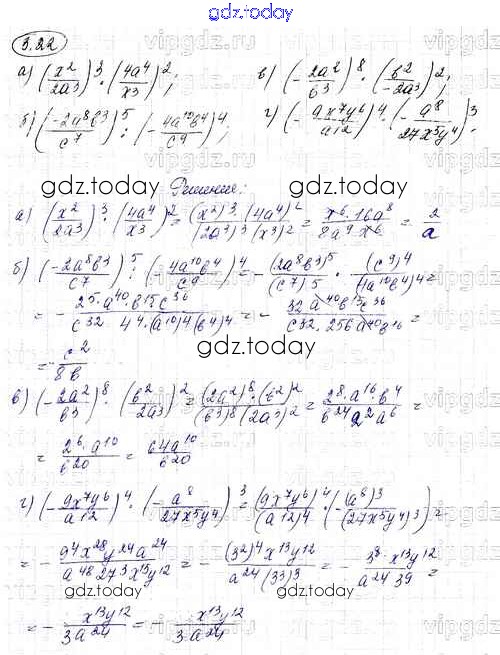 gdz.today
5.22
а) (x²/2a³)³ · (4a⁴/x³)²; в) (-2a²/b³)⁸ · (b²/-2a³)²;
б) (-2a⁸b³/c⁷)⁵ : (-4a¹⁰b⁴/c⁹)⁴; г) (-9x⁷y⁶/a¹²)⁴ · (-a⁸/27x⁵y⁴)³.
gdz.today gdz.today
Решение:
а) (x²/2a³)³ · (4a⁴/x³)² = (x²)³·(4a⁴)²/(2a³)³(x³)² = x⁶·16a⁸/8a⁹x⁶ = 2/a
б) (-2a⁸b³/c⁷)⁵ : (-4a¹⁰b⁴/c⁹)⁴ = -(2a⁸b³)⁵/(c⁷)⁵ · (c⁹)⁴/(4a¹⁰b⁴)⁴ =
= -2⁵·a⁴⁰·b¹⁵·c³⁶/c³² 4⁴·(a¹⁰)⁴(b⁴)⁴ = -32a⁴⁰b¹⁵c³⁶/c³²·256a⁴⁰b¹⁶ =
= -c²/8b
gdz.today
в) (-2a²/b³)⁸ · (b²/2a³)² = (2a²)⁸·(b²)²/(b³)⁸(2a³)² = 2⁸·a¹⁶·b⁴/b²⁴2²a⁶ =
= 2⁶·a¹⁰/b²⁰ = 64a¹⁰/b²⁰
gdz.today gdz.today
г) (-9x⁷y⁶/a¹²)⁴ · (-a⁸/27x⁵y⁴)³ = (9x⁷y⁶)⁴/(a¹²)⁴ · (-(a⁸)³/(27x⁵y⁴)³) =
= -9⁴x²⁸y²⁴a²⁴/a⁴⁸27³x¹⁵y¹² = -(3²)⁴x¹³y¹²/a²⁴(3³)³ = -3⁸·x¹³y¹²/a²⁴3⁹ =
= -x¹³y¹²/3a²⁴ = -x¹³y¹²/3a²⁴
gdz.today